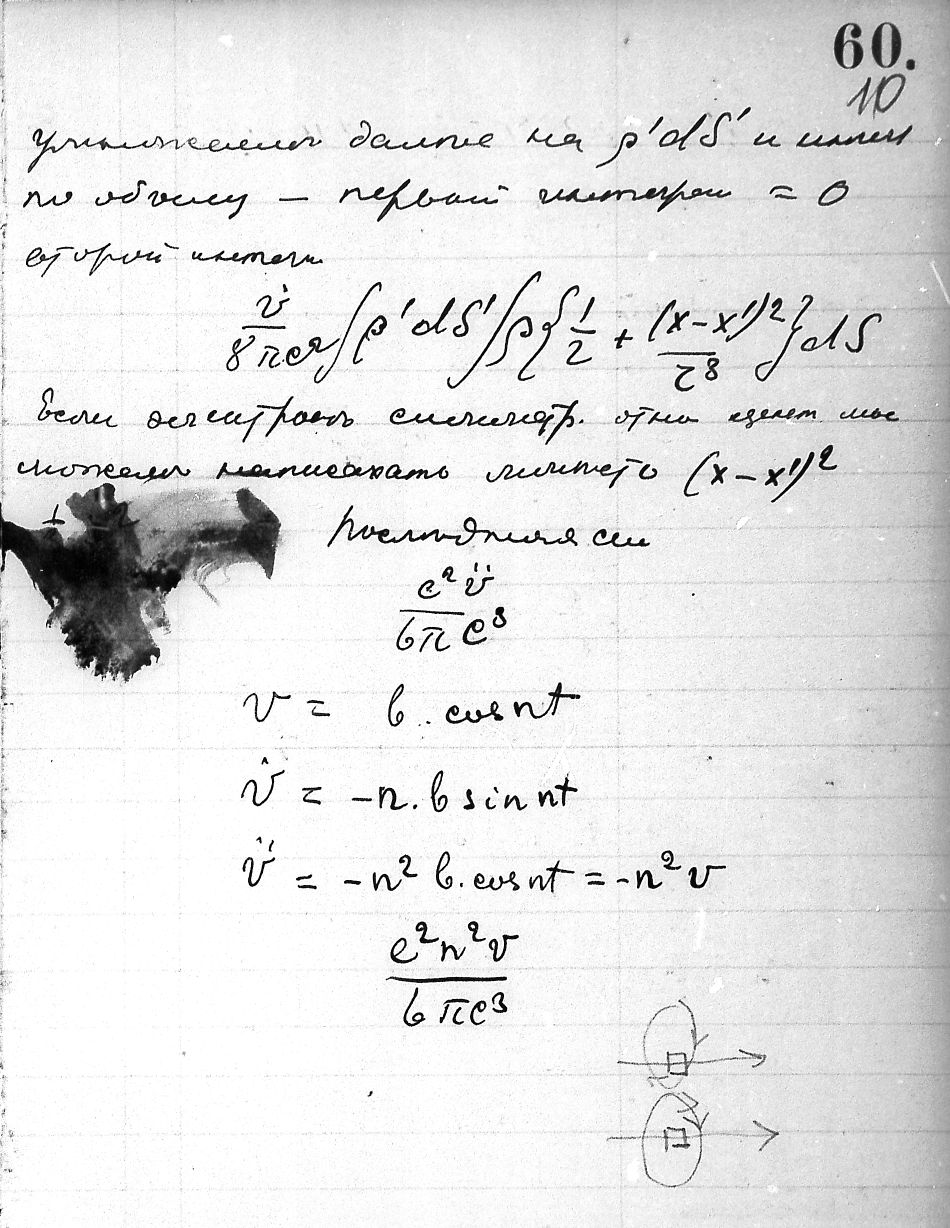 60.
10
умножаем далее на ρ'dS' и
по объему — первый интеграл = 0
второй интегр
v̇/8πc² ∫ρ'dS' ∫ρ{1/2 + (x-x')²/r³}dS
Если электронъ симметр. отно центр мы
можем написать вместо (x-x')²
последняя
e²v̈/6πc³
v = b.cos nt
v̇ = -n.b sin nt
v̈ = -n² b.cos nt = -n²v
e²n²v/6πc³